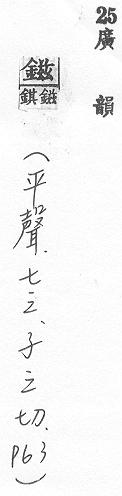 25廣韻
鎡
鎡錤
（平聲.七之.子之切.P63）